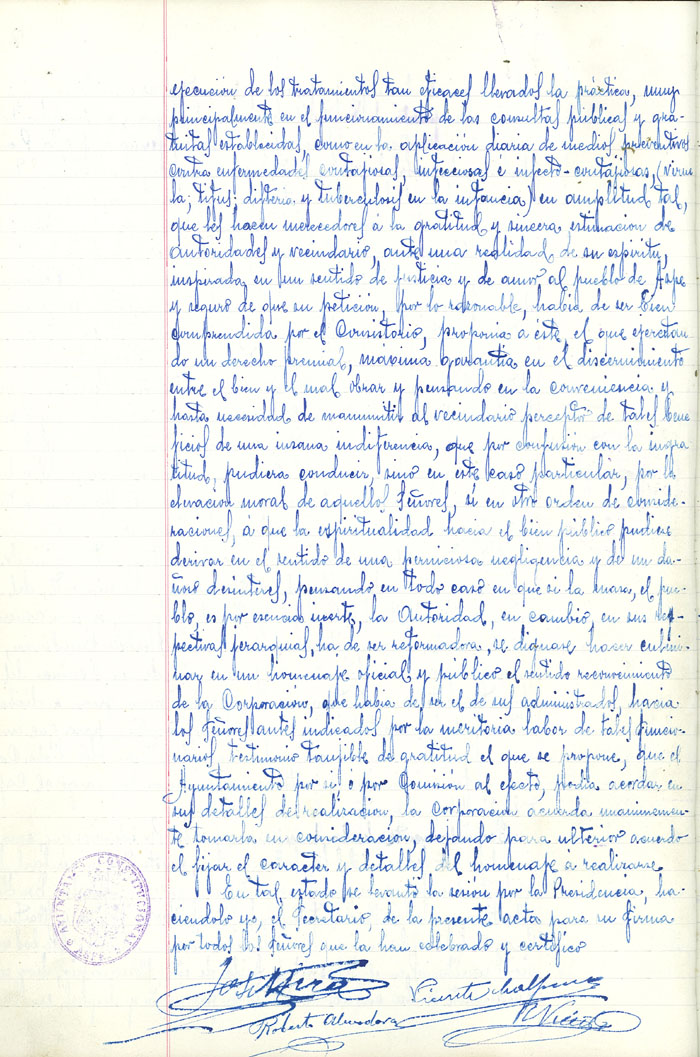 ejecución de los tratamientos tan eficaces llevados la práctica, muy
principalmente en el funcionamiento de las consultas públicas y gra-
tuitas establecidas, como en la aplicación diaria de medios preventivos
contra enfermedades contagiosas, infecciosas é infecto-contagiosas, (virue
la; tifus; difteria y tuberculosis en la infancia) en amplitud tal,
que les hacen merecedores á la gratitud y sincera estimación de
autoridades y vecindario, ante una realidad de su espíritu,
inspirada en un sentido de justicia y de amor al pueblo de Aspe
y seguro de que su petición, por lo razonable, había de ser bien
comprendida por el Consistorio, proponía a este, el que ejercitan
do un derecho premial, máxima garantía en el discernimiento
entre el bien y el mal obrar y pensando en la conveniencia y
hasta necesidad de manumitir al vecindario perceptor de tales bene
ficios de una insana indiferencia, que por confusión con la ingra
titud, pudiera conducir, sino en este caso particular, por la
elevación moral de aquellos Señores, si en otro orden de conside-
raciones, á que la espiritualidad hacia el bien público pudiese
derivar en el sentido de una perniciosa negligencia y de un da-
ñoso desinteres, pensando en todo caso en que si la masa, el pue-
blo, es por esencia inerte, la Autoridad, en cambio, en sus res-
pectivas jerarquias, ha de ser reformadora, se dignase hacer culmi-
nar en un homenaje oficial y público el sentido reconocimiento
de la Corporación, que había de ser el de sus administrados, hacia
los Señores antes indicados por la meritoria labor de tales funcio-
narios, testimonio tangible de gratitud el que se propone, que el
Ayuntamiento por si o por Comisión al efecto, podía acordar en
sus detalles de realización, la Corporación acuerda unanimemen-
te tomarla en consideración, dejando para ulterior acuerdo
el fijar el caracter y detalles del homenaje a realizarse
En tal estado se levantó la sesión por la Presidencia, ha-
ciendolo yo, el Secretario, de la presente acta para su firma
por todos los Señores que la han celebrado y certifico
AYUNTAMIENTO CONSTITUCIONAL
José Mira
Vicente
Roberto Almodóvar